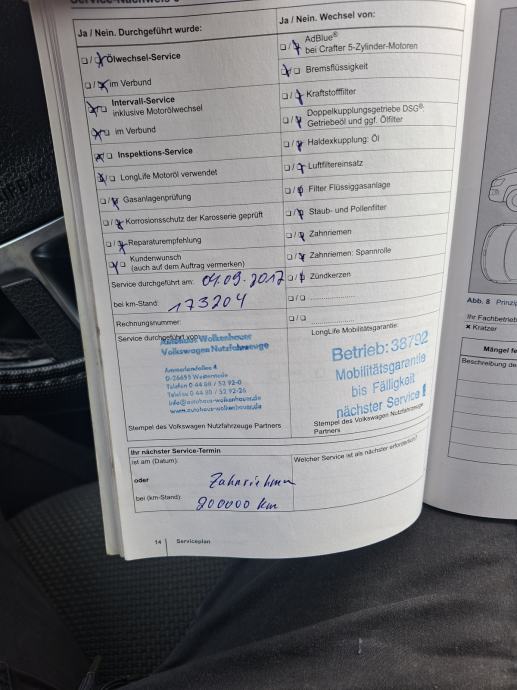 Service-Nachweis
Ja / Nein. Durchgeführt wurde:
Ölwechsel-Service
im Verbund
Intervall-Service
inklusive Motorölwechsel
im Verbund
Inspektions-Service
LongLife Motoröl verwendet
Gasanlagenprüfung
Korrosionsschutz der Karosserie geprüft
Reparaturempfehlung
Kundenwunsch
(auch auf dem Auftrag vermerken)
Service durchgeführt am: 04.09.2017
bei km-Stand: 173204
Rechnungsnummer:
Service durchgeführt von:
Autohaus Wolkenhauer
Volkswagen Nutzfahrzeuge
Ammerlandallee 4
D-26655 Westerstede
Telefon 0 44 88 / 52 92-0
Telefax 0 44 88 / 52 92-26
info@autohaus-wolkenhauer.de
www.autohaus-wolkenhauer.de
Stempel des Volkswagen Nutzfahrzeuge Partners
Ja / Nein. Wechsel von:
AdBlue®
bei Crafter 5-Zylinder-Motoren
Bremsflüssigkeit
Kraftstofffilter
Doppelkupplungsgetriebe DSG®:
Getriebeöl und ggf. Ölfilter
Haldexkupplung: Öl
Luftfiltereinsatz
Filter Flüssiggasanlage
Staub- und Pollenfilter
Zahnriemen
Zahnriemen: Spannrolle
Zündkerzen
LongLife Mobilitätsgarantie:
Betrieb: 38792
Mobilitätsgarantie
bis Fälligkeit
nächster Service !
Stempel des Volkswagen Nutzfahrzeuge
Partners
Ihr nächster Service-Termin
ist am (Datum):
oder Zahnriehmen
bei (km-Stand): 200000 km
Welcher Service ist als nächster erforderlich?
14 | Serviceplan
Abb. 8 Prinzip
Ihr Fachbetrieb
× Kratzer
Mängel
Beschreibung de